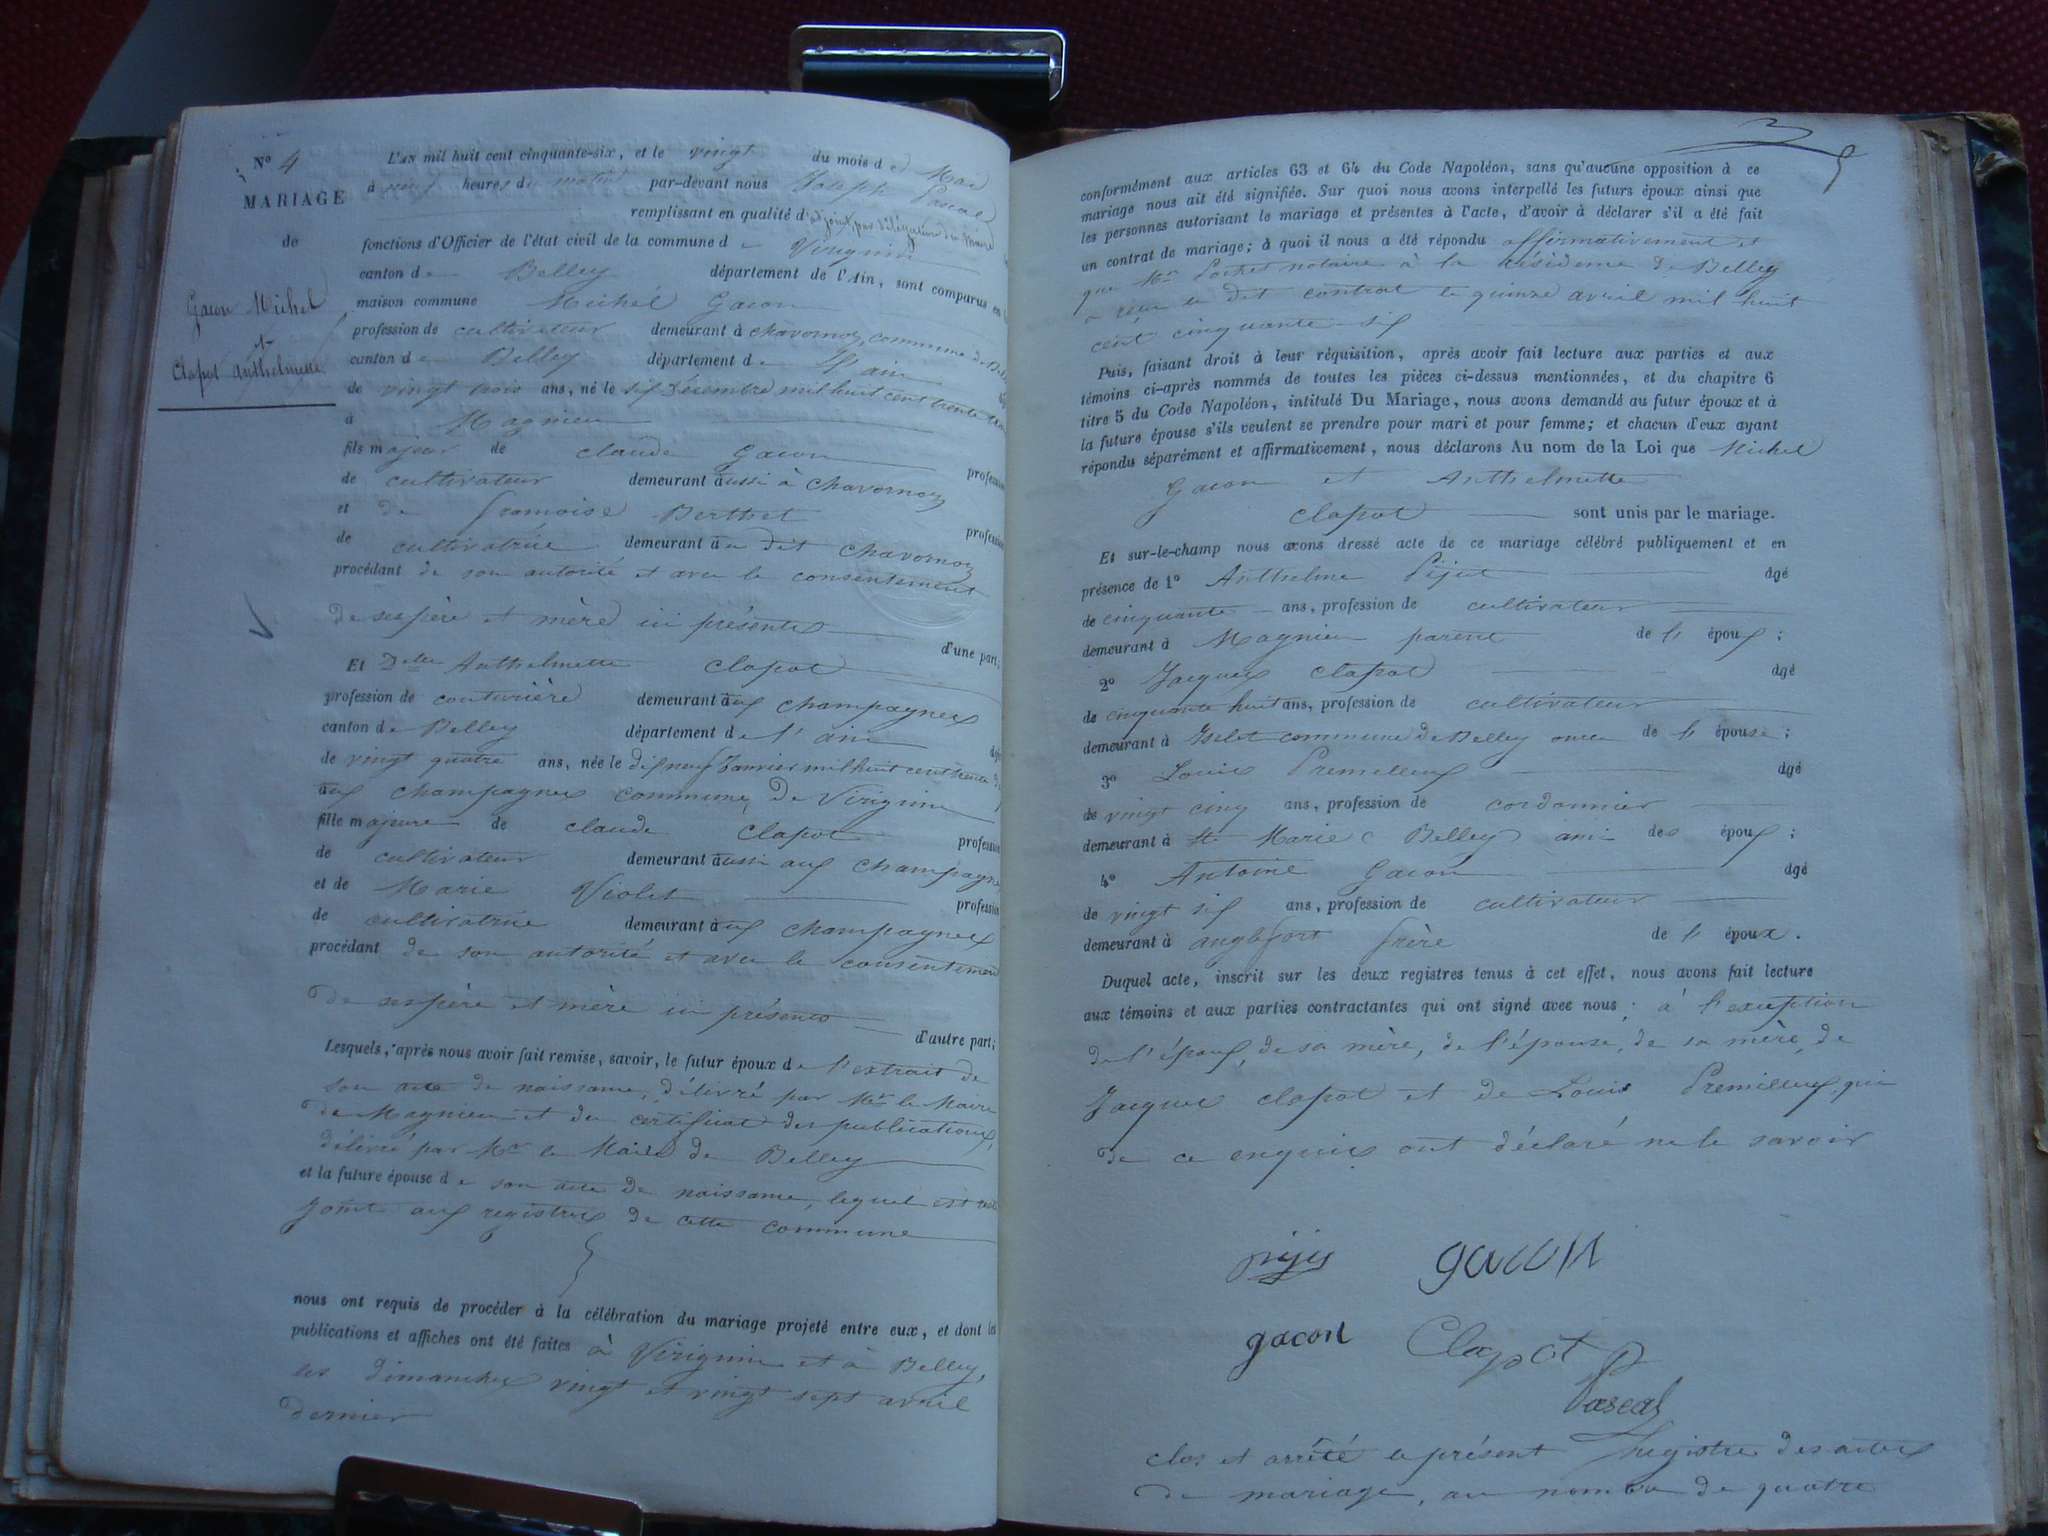 N° 4
MARIAGE
de
Gacon Michel
et
Clapot Anthelmette
L'AN mil huit cent cinquante-six, et le vingt du mois de Mai
à neuf heures du matin par-devant nous Joseph Pascal
remplissant en qualité d'adjoint, par délégation du Maire
fonctions d'Officier de l'état civil de la commune de Virignin
canton de Belley département de l'Ain, sont comparus en la
maison commune Michel Gacon
profession de cultivateur demeurant à Chavornoz, commune de Belley
canton de Belley département de l'ain
de vingt trois ans, né le six Décembre mil huit cent trente deux
à Magnieu
fils majeur de claude Gacon profession
de cultivateur demeurant aussi à Chavornoz
et de francoise Berthet profession
de cultivatrice demeurant au dit Chavornoz
procédant de son autorité et avec le consentement
de ses père et mère ici présents d'une part;
Et Delle Anthelmette Clapot
profession de couturière demeurant aux champagnes
canton de Belley département de l'ain âgée
de vingt quatre ans, née le dix neuf Janvier mil huit cent trente
aux champagnes commune de Virignin
fille majeure de claude Clapot profession
de cultivateur demeurant aussi aux champagnes
et de Marie Violet profession
de cultivatrice demeurant aux champagnes
procédant de son autorité et avec le consentement
de ses père et mère ici présents d'autre part;
Lesquels, après nous avoir fait remise, savoir, le futur époux de l'extrait de
son acte de naissance, délivré par Mr le Maire
de Magnieu et du certificat des publications,
délivré par Mr le Maire de Belley
et la future épouse de son acte de naissance, lequel est
joint aux registres de cette commune
nous ont requis de procéder à la célébration du mariage projeté entre eux, et dont les
publications et affiches ont été faites à Virignin et à Belley,
les dimanches vingt et vingt sept avril
dernier
conformément aux articles 63 et 64 du Code Napoléon, sans qu'aucune opposition à ce
mariage nous ait été signifiée. Sur quoi nous avons interpellé les futurs époux ainsi que
les personnes autorisant le mariage et présentes à l'acte, d'avoir à déclarer s'il a été fait
un contrat de mariage; à quoi il nous a été répondu affirmativement et
que Me Pochet notaire à la résidence de Belley
a reçu le dit contrat le quinze avril mil huit
cent cinquante six
Puis, faisant droit à leur réquisition, après avoir fait lecture aux parties et aux
témoins ci-après nommés de toutes les pièces ci-dessus mentionnées, et du chapitre 6
titre 5 du Code Napoléon, intitulé Du Mariage, nous avons demandé au futur époux et à
la future épouse s'ils veulent se prendre pour mari et pour femme; et chacun d'eux ayant
répondu séparément et affirmativement, nous déclarons Au nom de la Loi que Michel
Gacon et Anthelmette
Clapot sont unis par le mariage.
Et sur-le-champ nous avons dressé acte de ce mariage célébré publiquement et en
présence de 1° Anthelme Pijet âgé
de cinquante ans, profession de cultivateur
demeurant à Magnieu parent de l'époux;
2° Jacques Clapot âgé
de cinquante huit ans, profession de cultivateur
demeurant à commune de Belley oncle de l'épouse;
3° Louis Premilleux âgé
de vingt cinq ans, profession de cordonnier
demeurant à Ste Marie Belley ami des époux;
4° Antoine Gacon âgé
de vingt six ans, profession de cultivateur
demeurant à anglefort frère de l'époux.
Duquel acte, inscrit sur les deux registres tenus à cet effet, nous avons fait lecture
aux témoins et aux parties contractantes qui ont signé avec nous; à l'exception
de l'époux, de sa mère, de l'épouse, de sa mère, de
Jacques Clapot et de Louis Premilleux, qui
de ce enquis ont déclaré ne le savoir
gacon
gacon Clapot
Pascal
clos et arrêté le présent Registre des actes
de mariage, au nombre de quatre